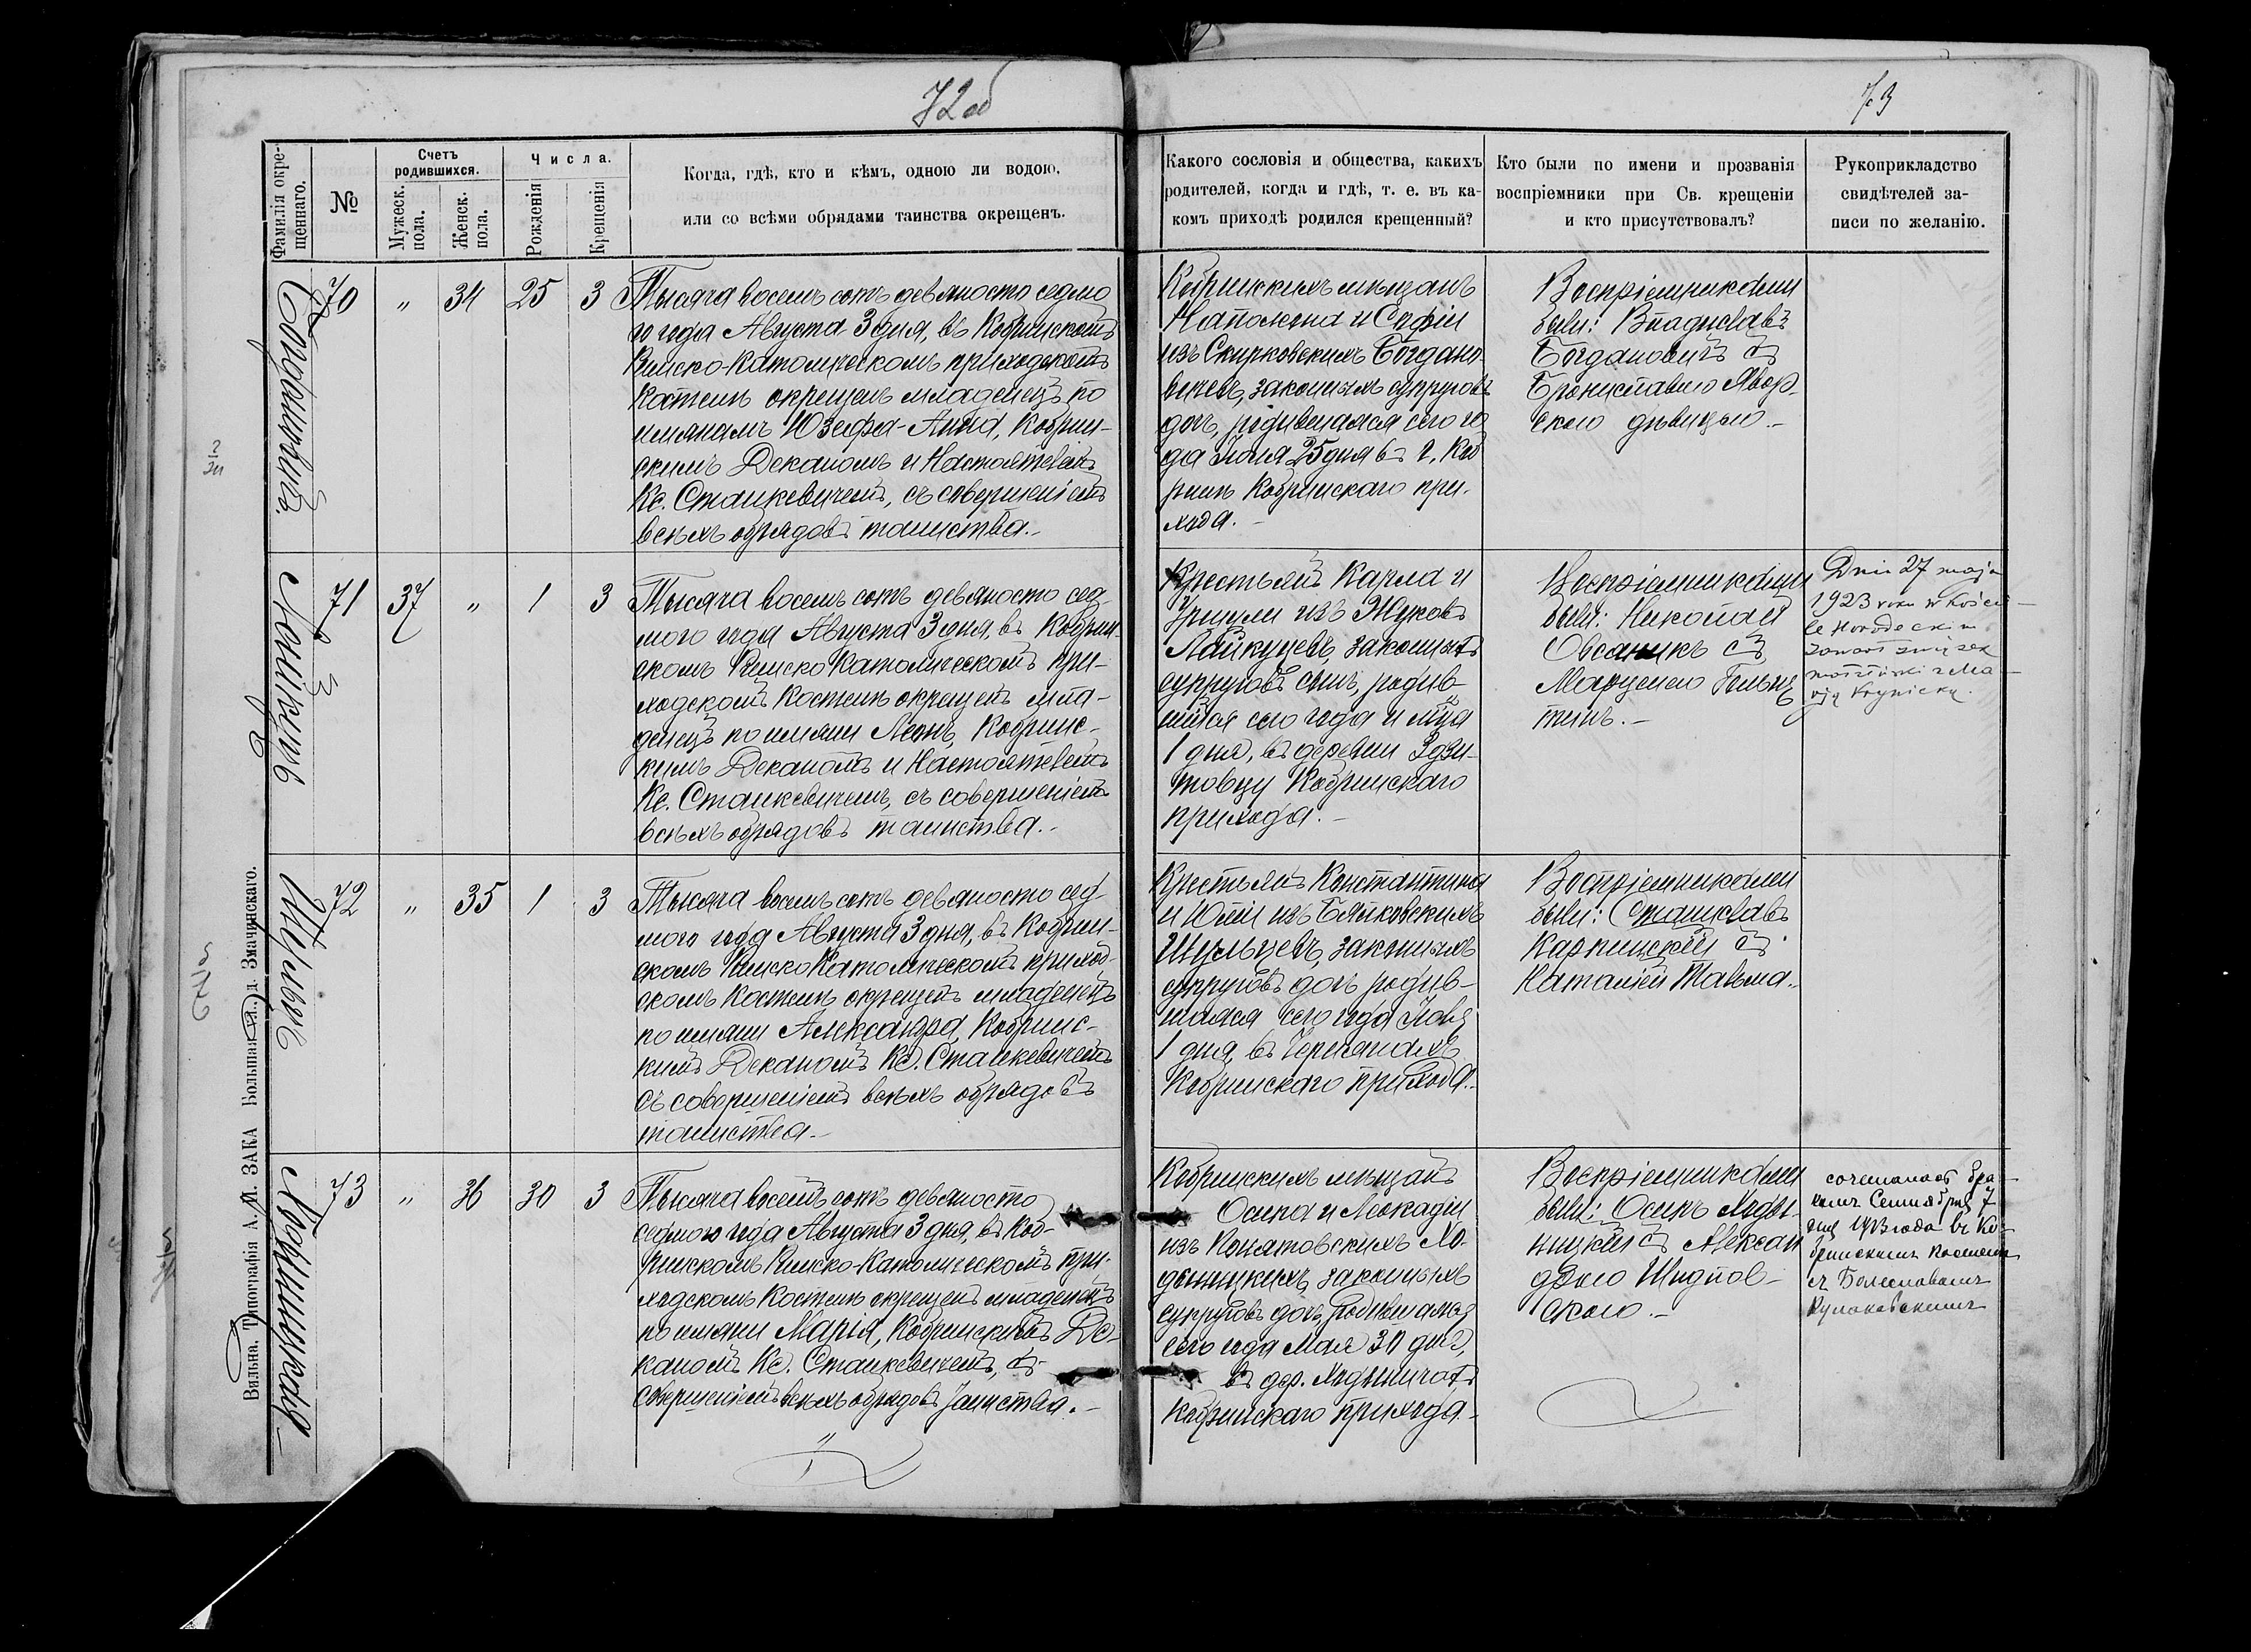 72об
73
Фамилія окре-
щеннаго.
№
Счетъ
родившихся.
Мужеск.
пола.
Женск.
пола.
Числа.
Рожденія
Крещенія
Когда, гдѣ, кто и кѣмъ, одною ли водою,
или со всѣми обрядами таинства окрещенъ.
Какого сословія и общества, какихъ
родителей, когда и гдѣ, т. е. въ ка-
комъ приходѣ родился крещенный?
Кто были по имени и прозванія
воспріемники при Св. крещеніи
и кто присутствовалъ?
Рукоприкладство
свидѣтелей за-
писи по желанію.
70 " 34 25 3
Тысяча восемь сотъ девяносто седмо
го года Августа 3 дня, въ Кобринскомъ
Римско-Католическомъ приходскомъ
Костелѣ окрещенъ младенецъ по
имянамъ Юзефа-Анна, Кобрин-
скимъ Деканомъ и Настоятелемъ
Кс. Станкевичемъ, съ совершеніемъ
всѣхъ обрядовъ таинства.-
Кобринскихъ мѣщанъ
Наполеона и Софіи
изъ Скирковскихъ Богдано-
вичевъ, законныхъ супруговъ
дочь, родившаяся сего го
да Іюля 25 дня въ г. Коб
ринѣ Кобринскаго при-
хода.-
Воспріемниками
были: Владиславъ
Богдановичъ съ
Брониславою Явор-
скою дѣвицею.-
71 37 " 1 3
Тысяча восемь сотъ девяносто сед-
мого года Августа 3 дня, въ Кобрин-
скомъ Римско Католическомъ при-
ходскомъ Костелѣ окрещенъ мла-
денецъ по имяни Леонъ, Кобринс-
кимъ Деканомъ и Настоятелемъ
Кс. Станкевичемъ, съ совершеніемъ
всѣхъ обрядовъ таинства.-
Крестьянъ Карла и
Уршули изъ Жуковъ
законныхъ
супруговъ сынъ, родив-
шійся сего года и мца
1 дня, въ деревни Здзи-
товцу Кобринскаго
прихода.-
Воспріемниками
были: Николай
Овсаникъ съ
72 " 35 1 3
Тысяча восемь сотъ девяносто сед-
мого года Августа 3 дня, въ Кобрин-
скомъ Римско Католическомъ приход-
скомъ Костелѣ окрещенъ младенецъ
по имяни Александра, Кобринс-
кимъ Деканомъ Кс. Станкевичемъ
съ совершеніемъ всѣхъ обрядовъ
таинства.-
Крестьянъ Константина
и Юліи изъ
Шульцевъ, законныхъ
супруговъ дочь родив-
шаяся сего года
1 дня, въ
Кобринскаго прихода.-
Воспріемниками
были: Станиславъ
Карпинскій съ
Наталіей
73 " 36 30 3
Тысяча восемь сотъ девяносто
седмого года Августа 3 дня, въ Коб-
ринскомъ Римско-Католическомъ при-
ходскомъ Костелѣ окрещенъ младенецъ
по имяни Марія, Кобринскимъ Де-
каномъ Кс. Станкевичемъ, съ
совершеніемъ всѣхъ обрядовъ таинства.-
Кобринскихъ мѣщанъ
Осипа и Леокадіи
изъ Понятовскихъ Хо-
дыницкихъ, законныхъ
супруговъ дочь, родившаяся
сего года Мая 30 дня,
въ дер. Ходыничахъ
Кобринскаго прихода.-
Воспріемниками
были: Осипъ Ходы-
ницкій съ Алексан
дрою Шидлов-
скою.-
Dnia 27 maja
1923 roku w kości-
ele Horodeckim
zawarł związek
małżeński z Ma-
rją Krynicką.
сочеталась бра-
комъ Сентября 7
дня 1913 года въ Ко-
бринскомъ костелѣ
съ Болеславомъ
Кулаковскимъ
Богдановичъ.
Шульцъ
Ходыницкая
Вильна. Типографія А. М. ЗАКА Большая ул., д. Змачинскаго.